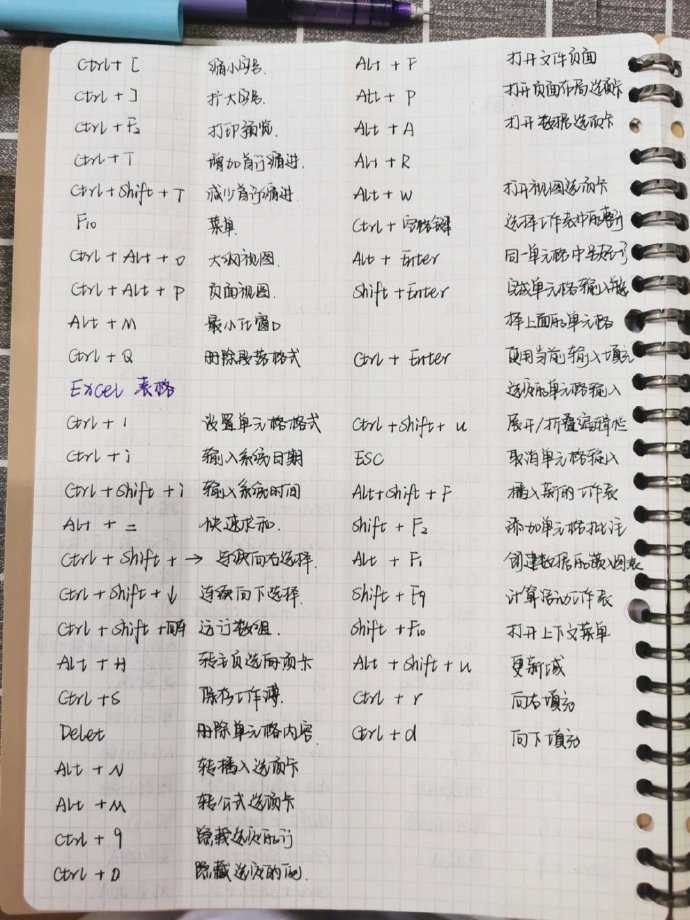 Ctrl + [ 缩小字号.
Ctrl + ] 扩大字号.
Ctrl + F2 打印预览.
Ctrl + T 增加首行缩进.
Ctrl + Shift + T 减少首行缩进.
F10 菜单.
Ctrl + Alt + O 大纲视图.
Ctrl + Alt + P 页面视图.
Alt + M 最小化窗口
Ctrl + Q 删除段落格式
Excel 表格
Ctrl + 1 设置单元格格式
Ctrl + ; 输入系统日期
Ctrl + Shift + ; 输入系统时间
Alt + = 快速求和.
Ctrl + Shift + → 连续向右选择.
Ctrl + Shift + ↓ 连续向下选择.
Ctrl + Shift + 回车 运行数组.
Alt + H 转主页选项卡
Ctrl + S 保存工作薄.
Delet 删除单元格内容.
Alt + N 转插入选项卡
Alt + M 转公式选项卡
Ctrl + 9 隐藏选定的行
Ctrl + 0 隐藏选定的列.
Alt + F 打开文件页面
Alt + P 打开页面布局选项卡
Alt + A 打开数据选项卡
Alt + R
Alt + W 打开视图选项卡
Ctrl + 空格键 选择工作表中的整列
Alt + Enter 同一单元格中
Shift + Enter 完成单元格输入
择上面的单元格
Ctrl + Enter 使用当前输入填充
选定的单元格输入
Ctrl + Shift + u 展开/折叠编辑栏
ESC 取消单元格输入
Alt + Shift + F 插入新的工作表
Shift + F2 添加单元格批注
Alt + F1 创建数据的嵌入图表
Shift + F9 计算活动工作表
Shift + F10 打开上下文菜单
Alt + Shift + u 更新域
Ctrl + r 向右填充
Ctrl + d 向下填充